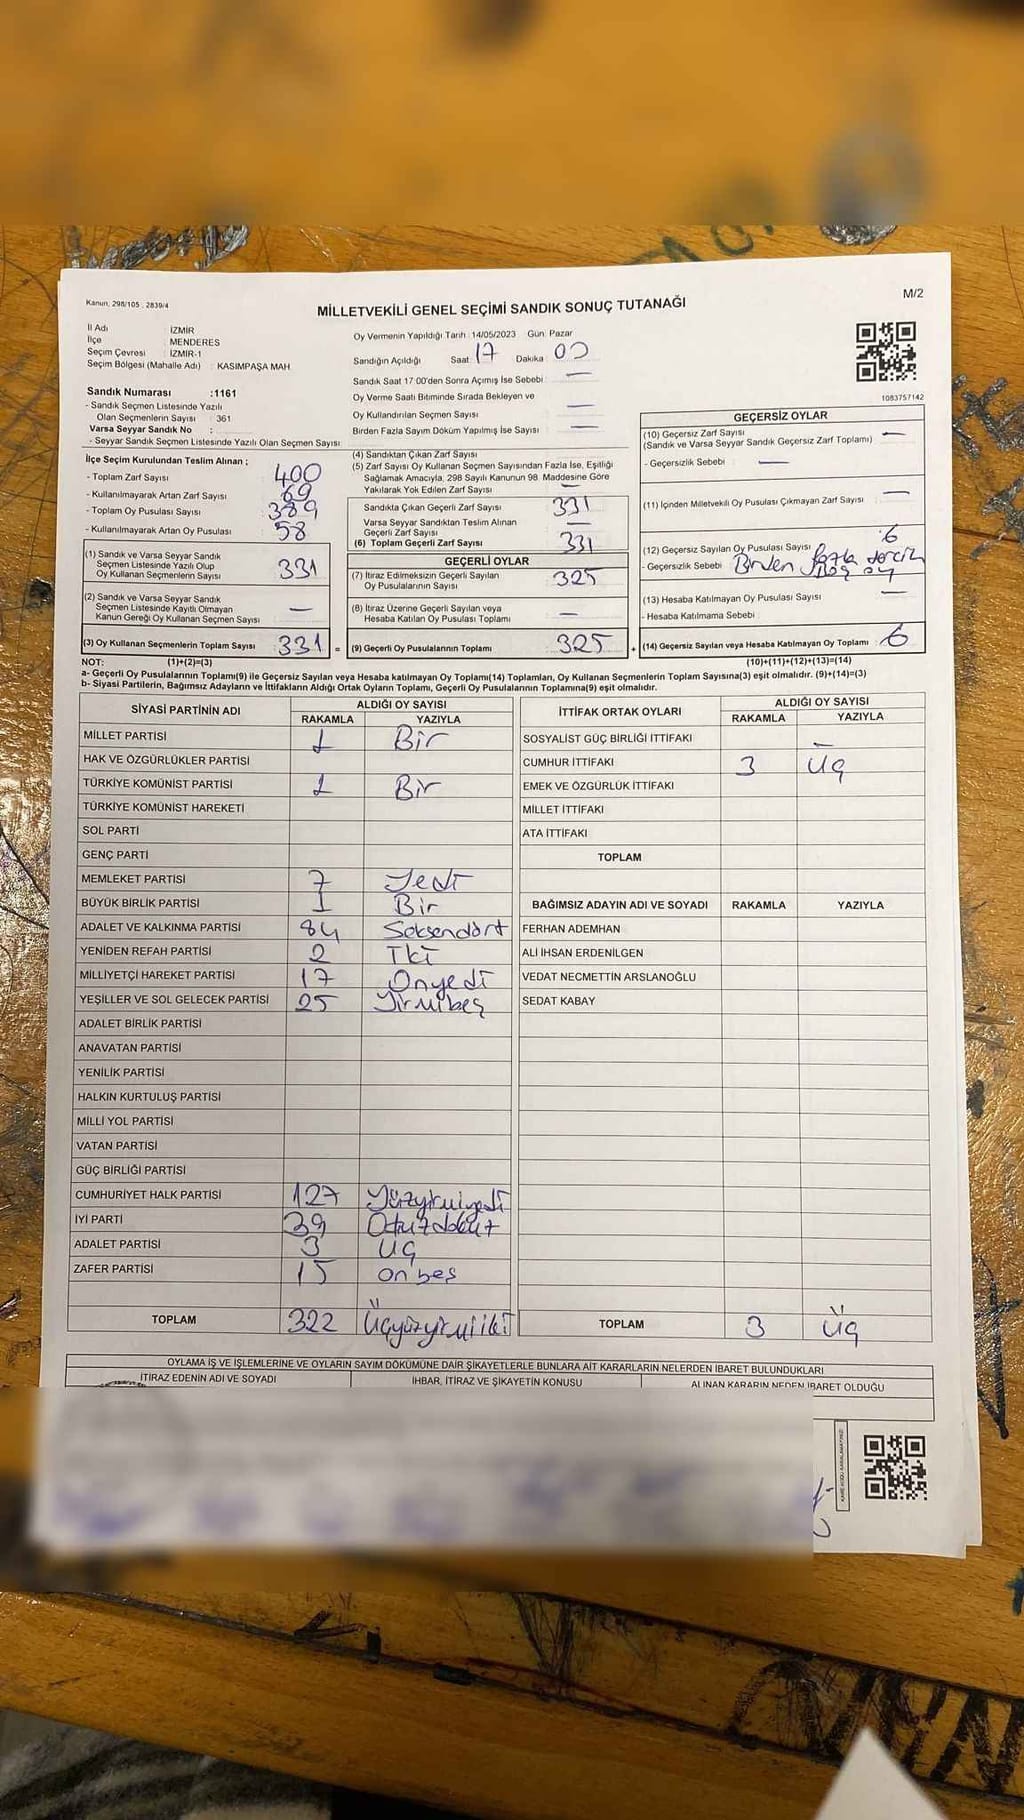 Kanun, 298/105 , 2839/4
M/2
MİLLETVEKİLİ GENEL SEÇİMİ SANDIK SONUÇ TUTANAĞI
İl Adı İZMİR
İlçe : MENDERES
Seçim Çevresi : İZMİR-1
Seçim Bölgesi (Mahalle Adı) : KASIMPAŞA MAH.
Sandık Numarası :1161
- Sandık Seçmen Listesinde Yazılı
Olan Seçmenlerin Sayısı : 361
Varsa Seyyar Sandık No :
- Seyyar Sandık Seçmen Listesinde Yazılı Olan Seçmen Sayısı
Oy Vermenin Yapıldığı Tarih :14/05/2023 Gün: Pazar
Sandığın Açıldığı Saat: 17 Dakika: 00
Sandık Saat 17:00'den Sonra Açımış İse Sebebi : —
Oy Verme Saati Bitiminde Sırada Bekleyen ve
Oy Kullandırılan Seçmen Sayısı —
Birden Fazla Sayım Döküm Yapılmış İse Sayısı —
1083757142
İlçe Seçim Kurulundan Teslim Alınan ;
- Toplam Zarf Sayısı 400
- Kullanılmayarak Artan Zarf Sayısı 69
- Toplam Oy Pusulası Sayısı 389
- Kullanılmayarak Artan Oy Pusulası 58
(1) Sandık ve Varsa Seyyar Sandık
Seçmen Listesinde Yazılı Olup
Oy Kullanan Seçmenlerin Sayısı 331
(2) Sandık ve Varsa Seyyar Sandık
Seçmen Listesinde Kayıtlı Olmayan
Kanun Gereği Oy Kullanan Seçmen Sayısı —
(3) Oy Kullanan Seçmenlerin Toplam Sayısı 331 =
(4) Sandıktan Çıkan Zarf Sayısı
(5) Zarf Sayısı Oy Kullanan Seçmen Sayısından Fazla İse, Eşitliği
Sağlamak Amacıyla, 298 Sayılı Kanunun 98. Maddesine Göre
Yakılarak Yok Edilen Zarf Sayısı —
Sandıkta Çıkan Geçerli Zarf Sayısı 331
Varsa Seyyar Sandıktan Teslim Alınan
Geçerli Zarf Sayısı —
(6) Toplam Geçerli Zarf Sayısı 331
GEÇERLİ OYLAR
(7) İtiraz Edilmeksizin Geçerli Sayılan
Oy Pusulalarının Sayısı 325
(8) İtiraz Üzerine Geçerli Sayılan veya
Hesaba Katılan Oy Pusulası Toplamı —
(9) Geçerli Oy Pusulalarının Toplamı 325 +
GEÇERSİZ OYLAR
(10) Geçersiz Zarf Sayısı —
(Sandık ve Varsa Seyyar Sandık Geçersiz Zarf Toplamı)
- Geçersizlik Sebebi : —
(11) İçinden Milletvekili Oy Pusulası Çıkmayan Zarf Sayısı —
(12) Geçersiz Sayılan Oy Pusulası Sayısı 6
- Geçersizlik Sebebi : Birden fazla tercih
boş oy
(13) Hesaba Katılmayan Oy Pusulası Sayısı —
- Hesaba Katılmama Sebebi :
(14) Geçersiz Sayılan veya Hesaba Katılmayan Oy Toplamı 6
NOT: (1)+(2)=(3) (10)+(11)+(12)+(13)=(14)
a- Geçerli Oy Pusulalarının Toplamı(9) ile Geçersiz Sayılan veya Hesaba katılmayan Oy Toplamı(14) Toplamları, Oy Kullanan Seçmenlerin Toplam Sayısına(3) eşit olmalıdır. (9)+(14)=(3)
b- Siyasi Partilerin, Bağımsız Adayların ve İttifakların Aldığı Ortak Oyların Toplamı, Geçerli Oy Pusulalarının Toplamına(9) eşit olmalıdır.
SİYASİ PARTİNİN ADI ALDIĞI OY SAYISI
RAKAMLA YAZIYLA
MİLLET PARTİSİ 1 Bir
HAK VE ÖZGÜRLÜKLER PARTİSİ
TÜRKİYE KOMÜNİST PARTİSİ 1 Bir
TÜRKİYE KOMÜNİST HAREKETİ
SOL PARTİ
GENÇ PARTİ
MEMLEKET PARTİSİ 7 Yedi
BÜYÜK BİRLİK PARTİSİ 1 Bir
ADALET VE KALKINMA PARTİSİ 84 Seksendört
YENİDEN REFAH PARTİSİ 2 İki
MİLLİYETÇİ HAREKET PARTİSİ 17 Onyedi
YEŞİLLER VE SOL GELECEK PARTİSİ 25 Yirmibeş
ADALET BİRLİK PARTİSİ
ANAVATAN PARTİSİ
YENİLİK PARTİSİ
HALKIN KURTULUŞ PARTİSİ
MİLLİ YOL PARTİSİ
VATAN PARTİSİ
GÜÇ BİRLİĞİ PARTİSİ
CUMHURİYET HALK PARTİSİ 127 Yüzyirmiyedi
İYİ PARTİ 39 Otuzdokuz
ADALET PARTİSİ 3 Üç
ZAFER PARTİSİ 15 onbeş
TOPLAM 322 Üçyüzyirmiiki
İTTİFAK ORTAK OYLARI ALDIĞI OY SAYISI
RAKAMLA YAZIYLA
SOSYALİST GÜÇ BİRLİĞİ İTTİFAKI
CUMHUR İTTİFAKI 3 Üç
EMEK VE ÖZGÜRLÜK İTTİFAKI
MİLLET İTTİFAKI
ATA İTTİFAKI
TOPLAM
BAĞIMSIZ ADAYIN ADI VE SOYADI RAKAMLA YAZIYLA
FERHAN ADEMHAN
ALİ İHSAN ERDENİLGEN
VEDAT NECMETTİN ARSLANOĞLU
SEDAT KABAY
TOPLAM 3 Üç
OYLAMA İŞ VE İŞLEMLERİNE VE OYLARIN SAYIM DÖKÜMÜNE DAİR ŞİKAYETLERLE BUNLARA AİT KARARLARIN NELERDEN İBARET BULUNDUKLARI
İTİRAZ EDENİN ADI VE SOYADI İHBAR, İTİRAZ VE ŞİKAYETİN KONUSU ALINAN KARARIN NEDEN İBARET OLDUĞU